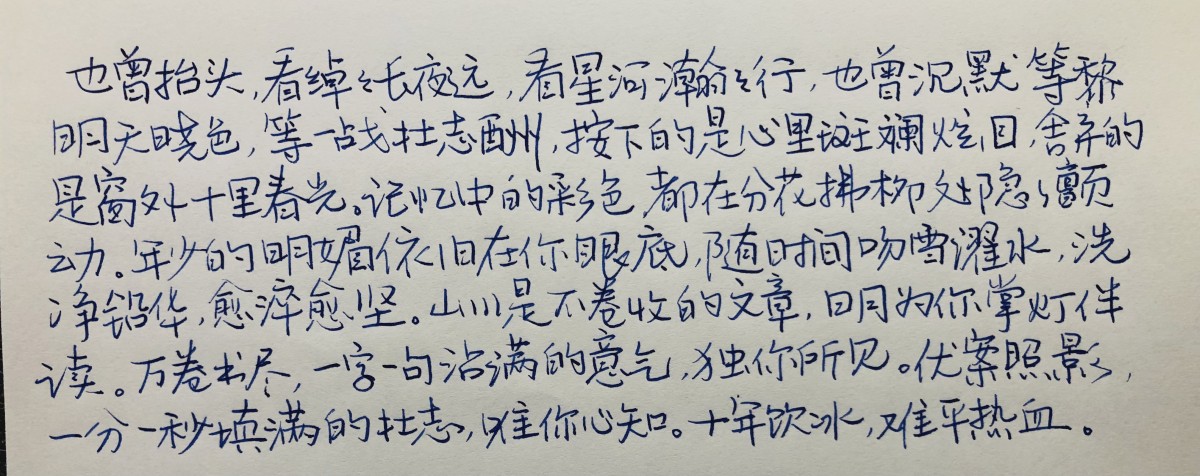 也曾抬头,看绰々长夜远,看星河瀚々行,也曾沉默等黎
明天晓色,等一战壮志酬州,按下的是心里斑斓炫目,舍弃的
是窗外十里春光。记忆中的彩色,都在分花拂柳处隐々颤
动。年少的明媚依旧在你眼底,随时间吻雪濯水,洗
净铅华,愈淬愈坚。山川是不卷收的文章,日月为你掌灯伴
读。万卷书尽,一字一句沾满的意气,独你所见。伏案照影,
一分一秒填满的壮志,唯你心知。十年饮冰,难平热血。